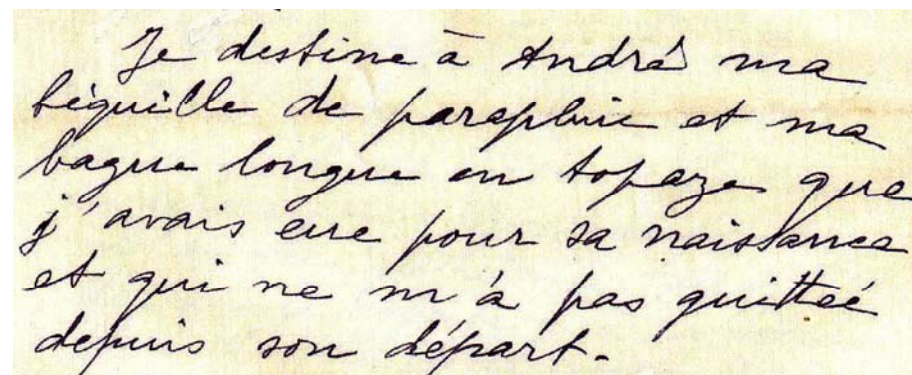 Je destine à André ma
béquille de parapluie et ma
bague longue en topaze que
j'avais eue pour sa naissance
et qui ne m'a pas quitteé
depuis son départ.